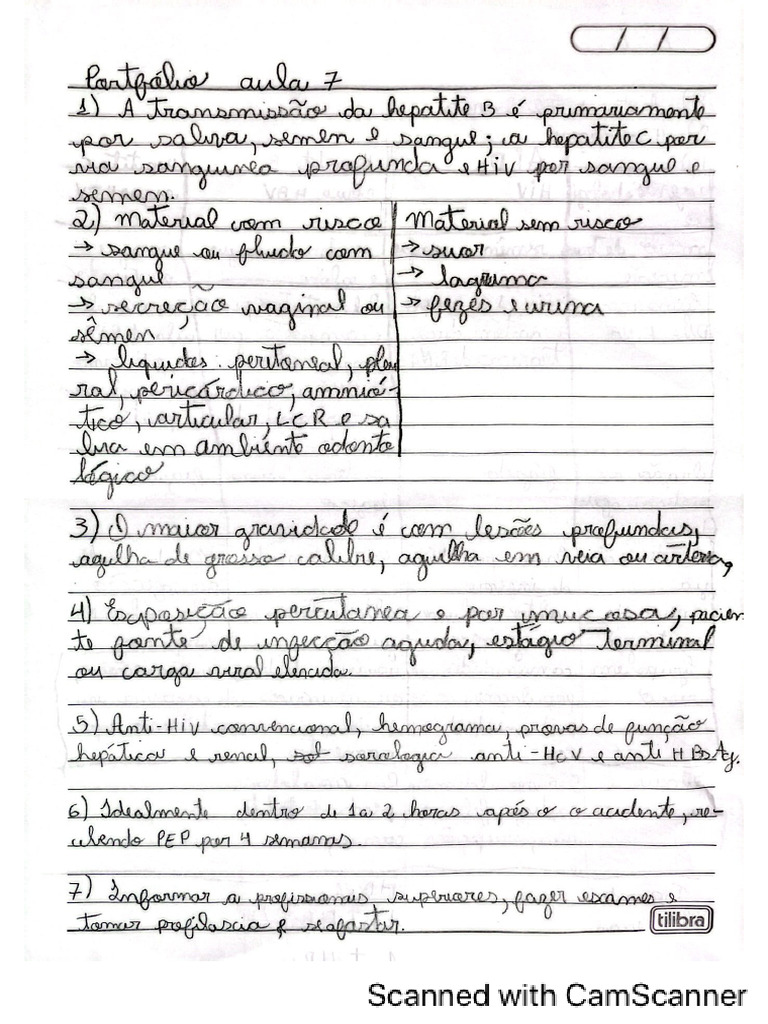 / /
Portfólio aula 7
1) A transmissão da hepatite B é primariamente
por saliva, semen e sangue; a hepatite C por
via sanguinea profunda e HiV por sangue e
semen.
2) Material com risco
→ sangue ou fluido com
sangue
→ secreção vaginal ou
sêmen
→ liquidos: peritoneal, pleu
ral, pericárdico, amnió-
tico, articular, LCR e sa
liva em ambiente odonto
lógico
Material sem risco
→ suor
→ lagrima
→ fezes e urina
3) A maior gravidade é com lesões profundas,
agulha de grosso calibre, agulha em veia ou arteria,
4) Exposição percutanea e por mucosa, pacien
te fonte de infecção aguda, estágio terminal
ou carga viral elevada.
5) Anti-HiV convencional, hemograma, provas de função
hepática e renal, sorologia anti-HCV e anti HBsAg.
6) Idealmente dentro de 1 a 2 horas após o acidente, re-
cebendo PEP por 4 semanas.
7) Informar a profissionais superiores, fazer exames e
tomar profilaxia e se afastar.
tilibra
Scanned with CamScanner